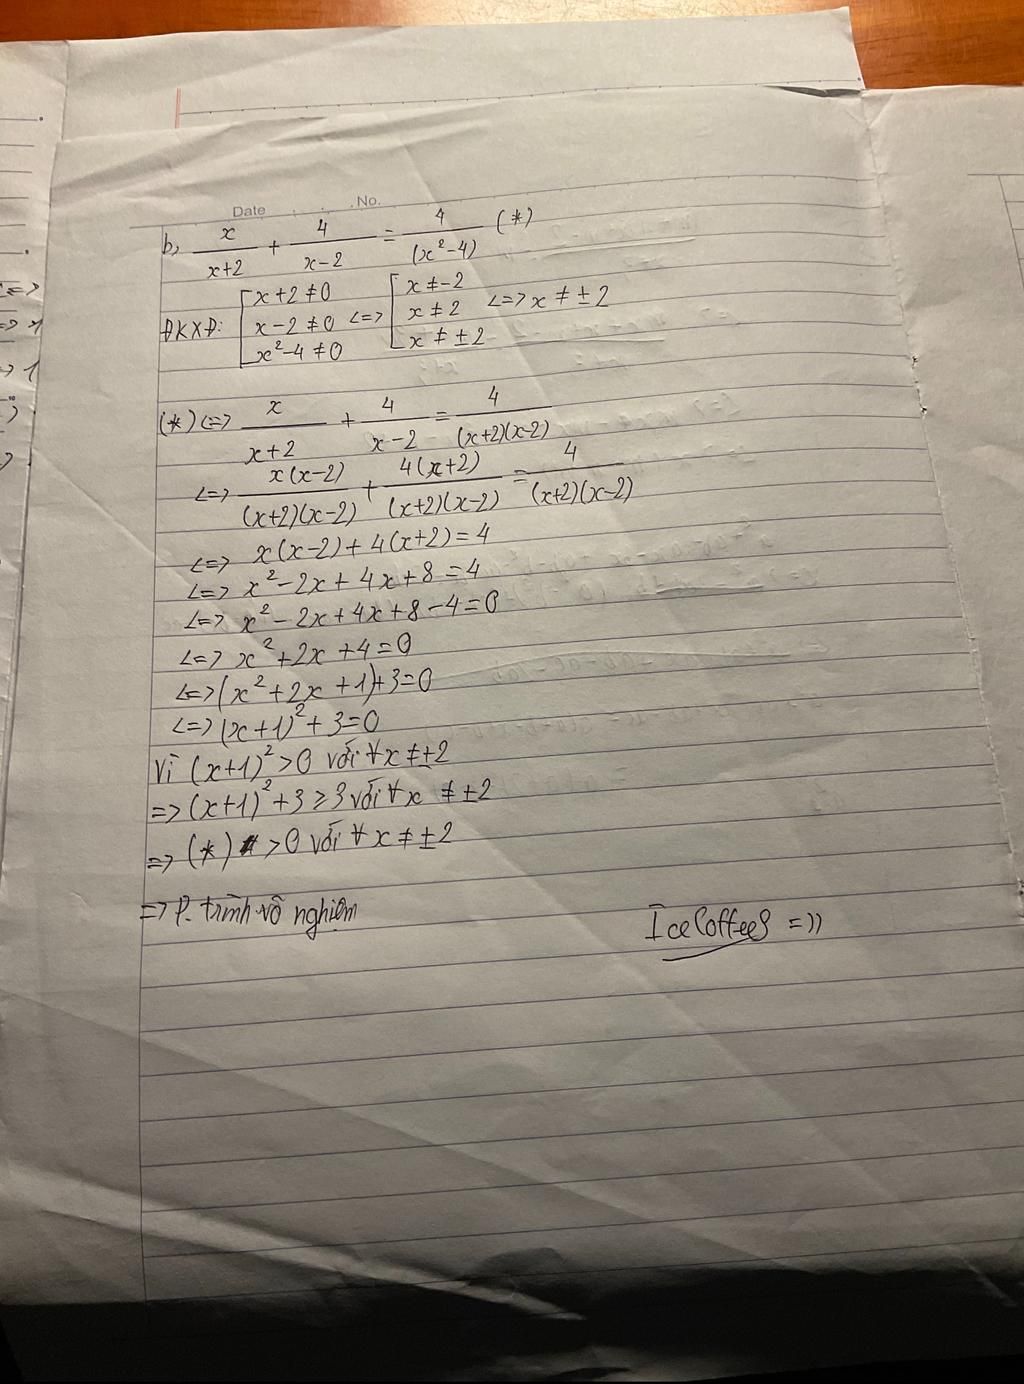 Date No.
b, x/(x+2) + 4/(x-2) = 4/(x²-4) (*)
ĐKXĐ: [x+2≠0 x-2≠0 x²-4≠0 <=> [x≠-2 x≠2 x≠±2 <=> x≠±2
(*) <=> x/(x+2) + 4/(x-2) = 4/((x+2)(x-2))
<=> x(x-2)/((x+2)(x-2)) + 4(x+2)/((x+2)(x-2)) = 4/((x+2)(x-2))
<=> x(x-2)+4(x+2)=4
<=> x²-2x+4x+8=4
<=> x²-2x+4x+8-4=0
<=> x²+2x+4=0
<=> (x²+2x+1)+3=0
<=> (x+1)²+3=0
Vì (x+1)²>0 với ∀x≠±2
=> (x+1)²+3≥3 với ∀x≠±2
=> (*) >0 với ∀x≠±2
=> P. trình vô nghiệm
IceCoffee8 =))